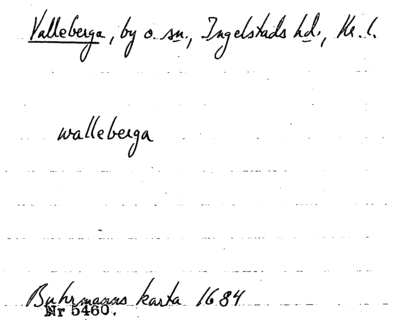 Valleberga, by o. sn., Ingelstads hd., Kr. l.
walleberga
Buhrmanns karta 1684
Nr 5460.